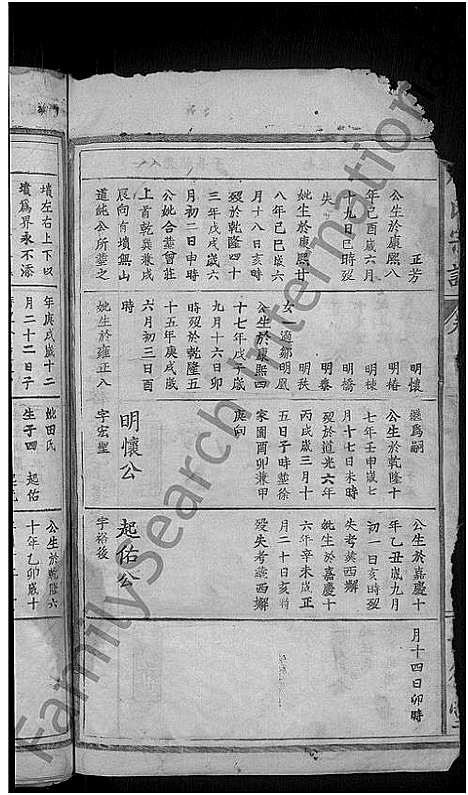 正芳
公生於康熙八
年己酉歲六月
十九日巳時歿
失
妣生於康熙廿
八年己巳歲六
月十八日亥時
歿於乾隆四十
三年戊戌歲六
月初二日申時
公妣合塟曾莊
上首乾巽兼戌
辰向有墳無山
道純公所塟之
明懷
明椿
明棟
明橋
明榛
明秩
女 適鄒明凰
公生於康熙四
十七年戊子歲
九月十六日卯
時歿於乾隆五
十五年庚戌歲
六月初三日酉
時
妣生於雍正八
繼爲嗣
公生於乾隆十
七年壬申歲七
月十七日未時
歿於道光六年
丙戌歲三月十
五日子時塟徐
家園酉卯兼甲
庚向
明懷公
字宏聖
公生於嘉慶十
年乙丑歲九月
初一日亥時歿
失考塟西壩
妣生於嘉慶十
六年辛未歲正
月二十日亥時
歿失考塟西壩
起佑公
字裕後
月十四日卯時
墳左右上下以
墳爲界永不添
年庚戌歲十二
月二十二日子
妣田氏
生子四 起佑
公生於乾隆六
十年乙卯歲十
FamilySearch International